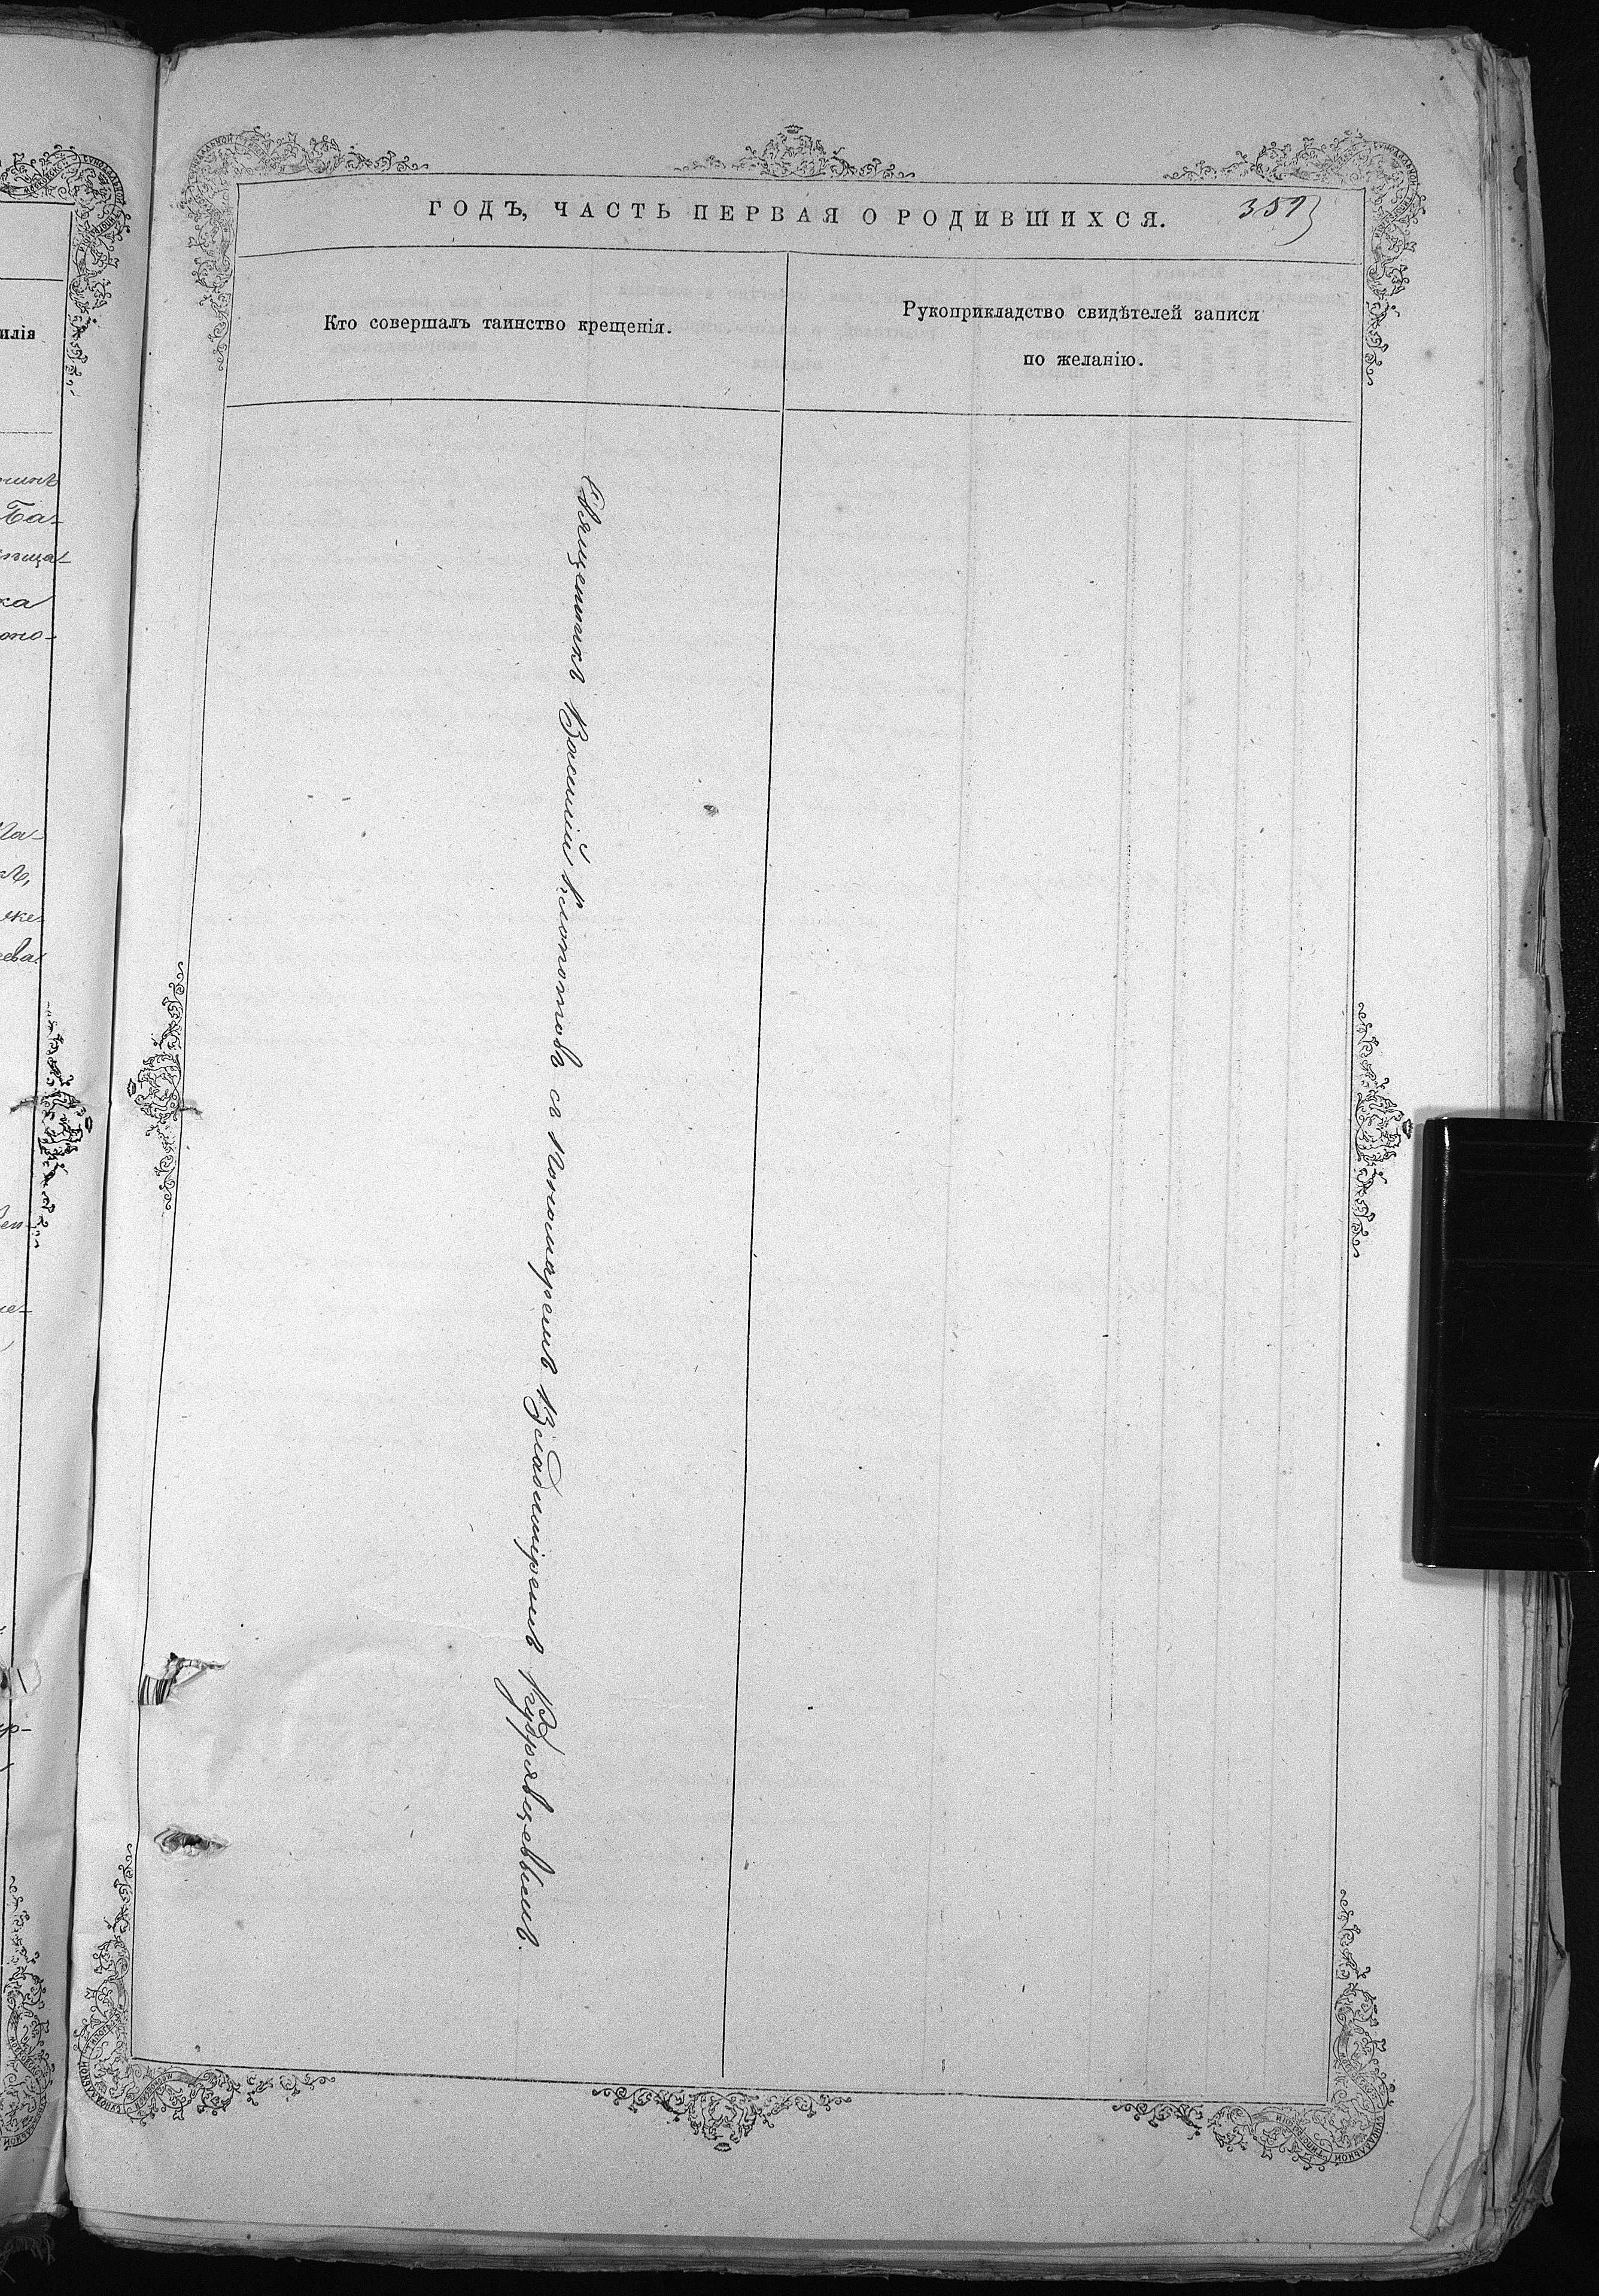 ГОДЪ, ЧАСТЬ ПЕРВАЯ О РОДИВШИХСЯ.
Кто совершалъ таинство крещенія.
Рукоприкладство свидѣтелей записи
по желанію.
Священникъ Василій Клопотовъ съ пономаремъ Владиміремъ Кудрявцевымъ.
илія
Ба-
ка